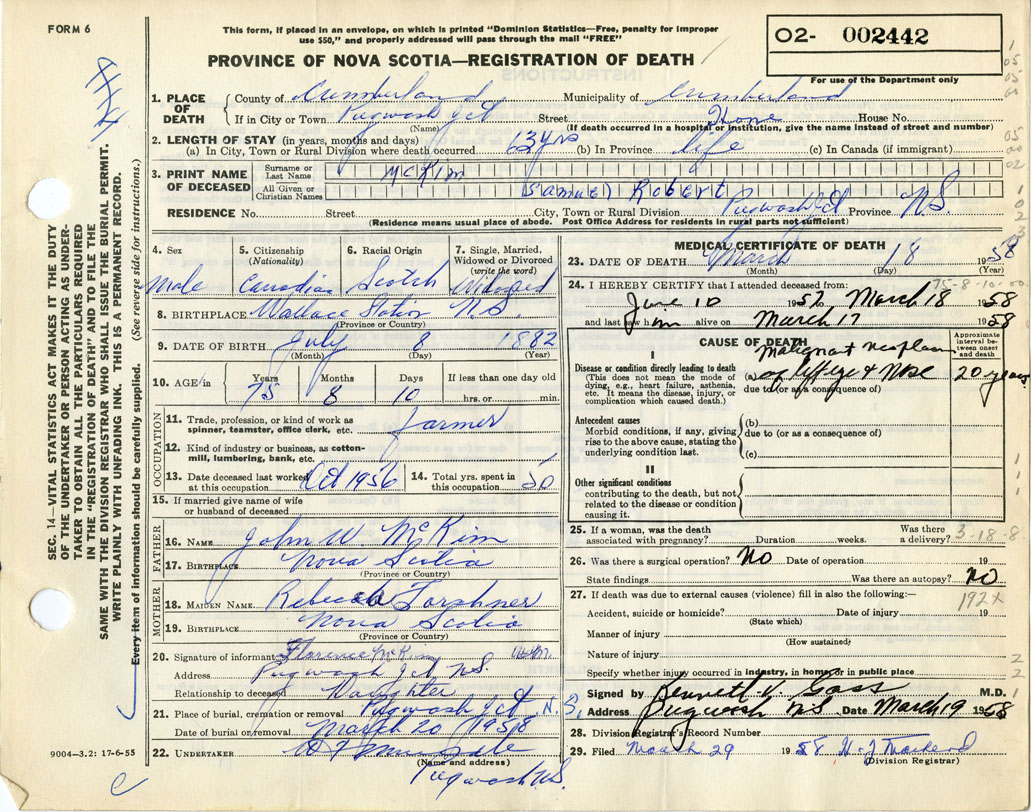 FORM 6
This form, if placed in an envelope, on which is printed "Dominion Statistics—Free, penalty for improper
use $50," and properly addressed will pass through the mail "FREE"
O2- 002442
For use of the Department only
PROVINCE OF NOVA SCOTIA—REGISTRATION OF DEATH
1. PLACE OF DEATH County of Cumberland Municipality of Cumberland
If in City or Town Pugwash Jct Street Home House No.
(Name) (If death occurred in a hospital or institution, give the name instead of street and number)
2. LENGTH OF STAY (in years, months and days)
(a) In City, Town or Rural Division where death occurred 63 yrs (b) In Province life (c) In Canada (if immigrant)
3. PRINT NAME OF DECEASED
Surname or Last Name McKim
All Given or Christian Names Samuel Robert
RESIDENCE No. Street City, Town or Rural Division Pugwash Jct Province N.S.
(Residence means usual place of abode. Post Office Address for residents in rural parts not sufficient)
4. Sex Male
5. Citizenship (Nationality) Canadian
6. Racial Origin Scotch
7. Single, Married, Widowed or Divorced (write the word) Widowed
8. BIRTHPLACE Wallace Station N.S.
(Province or Country)
9. DATE OF BIRTH July 8 1882
(Month) (Day) (Year)
10. AGE in Years Months Days If less than one day old
75 8 10 hrs. or min.
OCCUPATION
11. Trade, profession, or kind of work as
spinner, teamster, office clerk, etc. farmer
12. Kind of industry or business, as cotton-
mill, lumbering, bank, etc.
13. Date deceased last worked at this occupation Oct 1956
14. Total yrs. spent in this occupation 50
15. If married give name of wife
or husband of deceased
FATHER
16. NAME John W. McKim
17. BIRTHPLACE Nova Scotia
(Province or Country)
MOTHER
18. MAIDEN NAME Rebecca Forshner
19. BIRTHPLACE Nova Scotia
(Province or Country)
20. Signature of informant Florence McKim
Address Pugwash Jct N.S.
Relationship to deceased Daughter
21. Place of burial, cremation or removal Pugwash Jct N.S.
Date of burial or removal March 20 1958
22. UNDERTAKER
(Name and address)
Pugwash N.S.
9004—3.2: 17-6-55
MEDICAL CERTIFICATE OF DEATH
23. DATE OF DEATH March 18 1958
(Month) (Day) (Year)
75-8-10-00
24. I HEREBY CERTIFY that I attended deceased from:
June 10 1957 March 18 1958
and last saw him alive on March 17 1958
CAUSE OF DEATH
Approximate interval between onset and death
I
Disease or condition directly leading to death
(This does not mean the mode of
dying, e.g., heart failure, asthenia,
etc. It means the disease, injury, or
complication which caused death.)
Malignant neoplasm
(a) of left eye & nose 20 years
due to (or as a consequence of)
Antecedent causes
Morbid conditions, if any, giving
rise to the above cause, stating the
underlying condition last.
(b)
due to (or as a consequence of)
(c)
II
Other significant conditions
contributing to the death, but not
related to the disease or condition
causing it.
25. If a woman, was the death Was there
associated with pregnancy? Duration weeks. a delivery? 3-18-8
26. Was there a surgical operation? No Date of operation 19
State findings Was there an autopsy? No
27. If death was due to external causes (violence) fill in also the following:—
192X
Accident, suicide or homicide? Date of injury 19
(State which)
Manner of injury
(How sustained)
Nature of injury
Specify whether injury occurred in industry, in home or in public place
Signed by Kenneth V. Gass M.D.
Address Pugwash N.S. Date March 19 1958
28. Division Registrar's Record Number
29. Filed March 29 1958
(Division Registrar)
SEC. 14—VITAL STATISTICS ACT MAKES IT THE DUTY
OF THE UNDERTAKER OR PERSON ACTING AS UNDER-
TAKER TO OBTAIN ALL THE PARTICULARS REQUIRED
IN THE "REGISTRATION OF DEATH" AND TO FILE THE
SAME WITH THE DIVISION REGISTRAR WHO SHALL ISSUE THE BURIAL PERMIT.
WRITE PLAINLY WITH UNFADING INK. THIS IS A PERMANENT RECORD.
Every item of information should be carefully supplied. (See reverse side for instructions.)